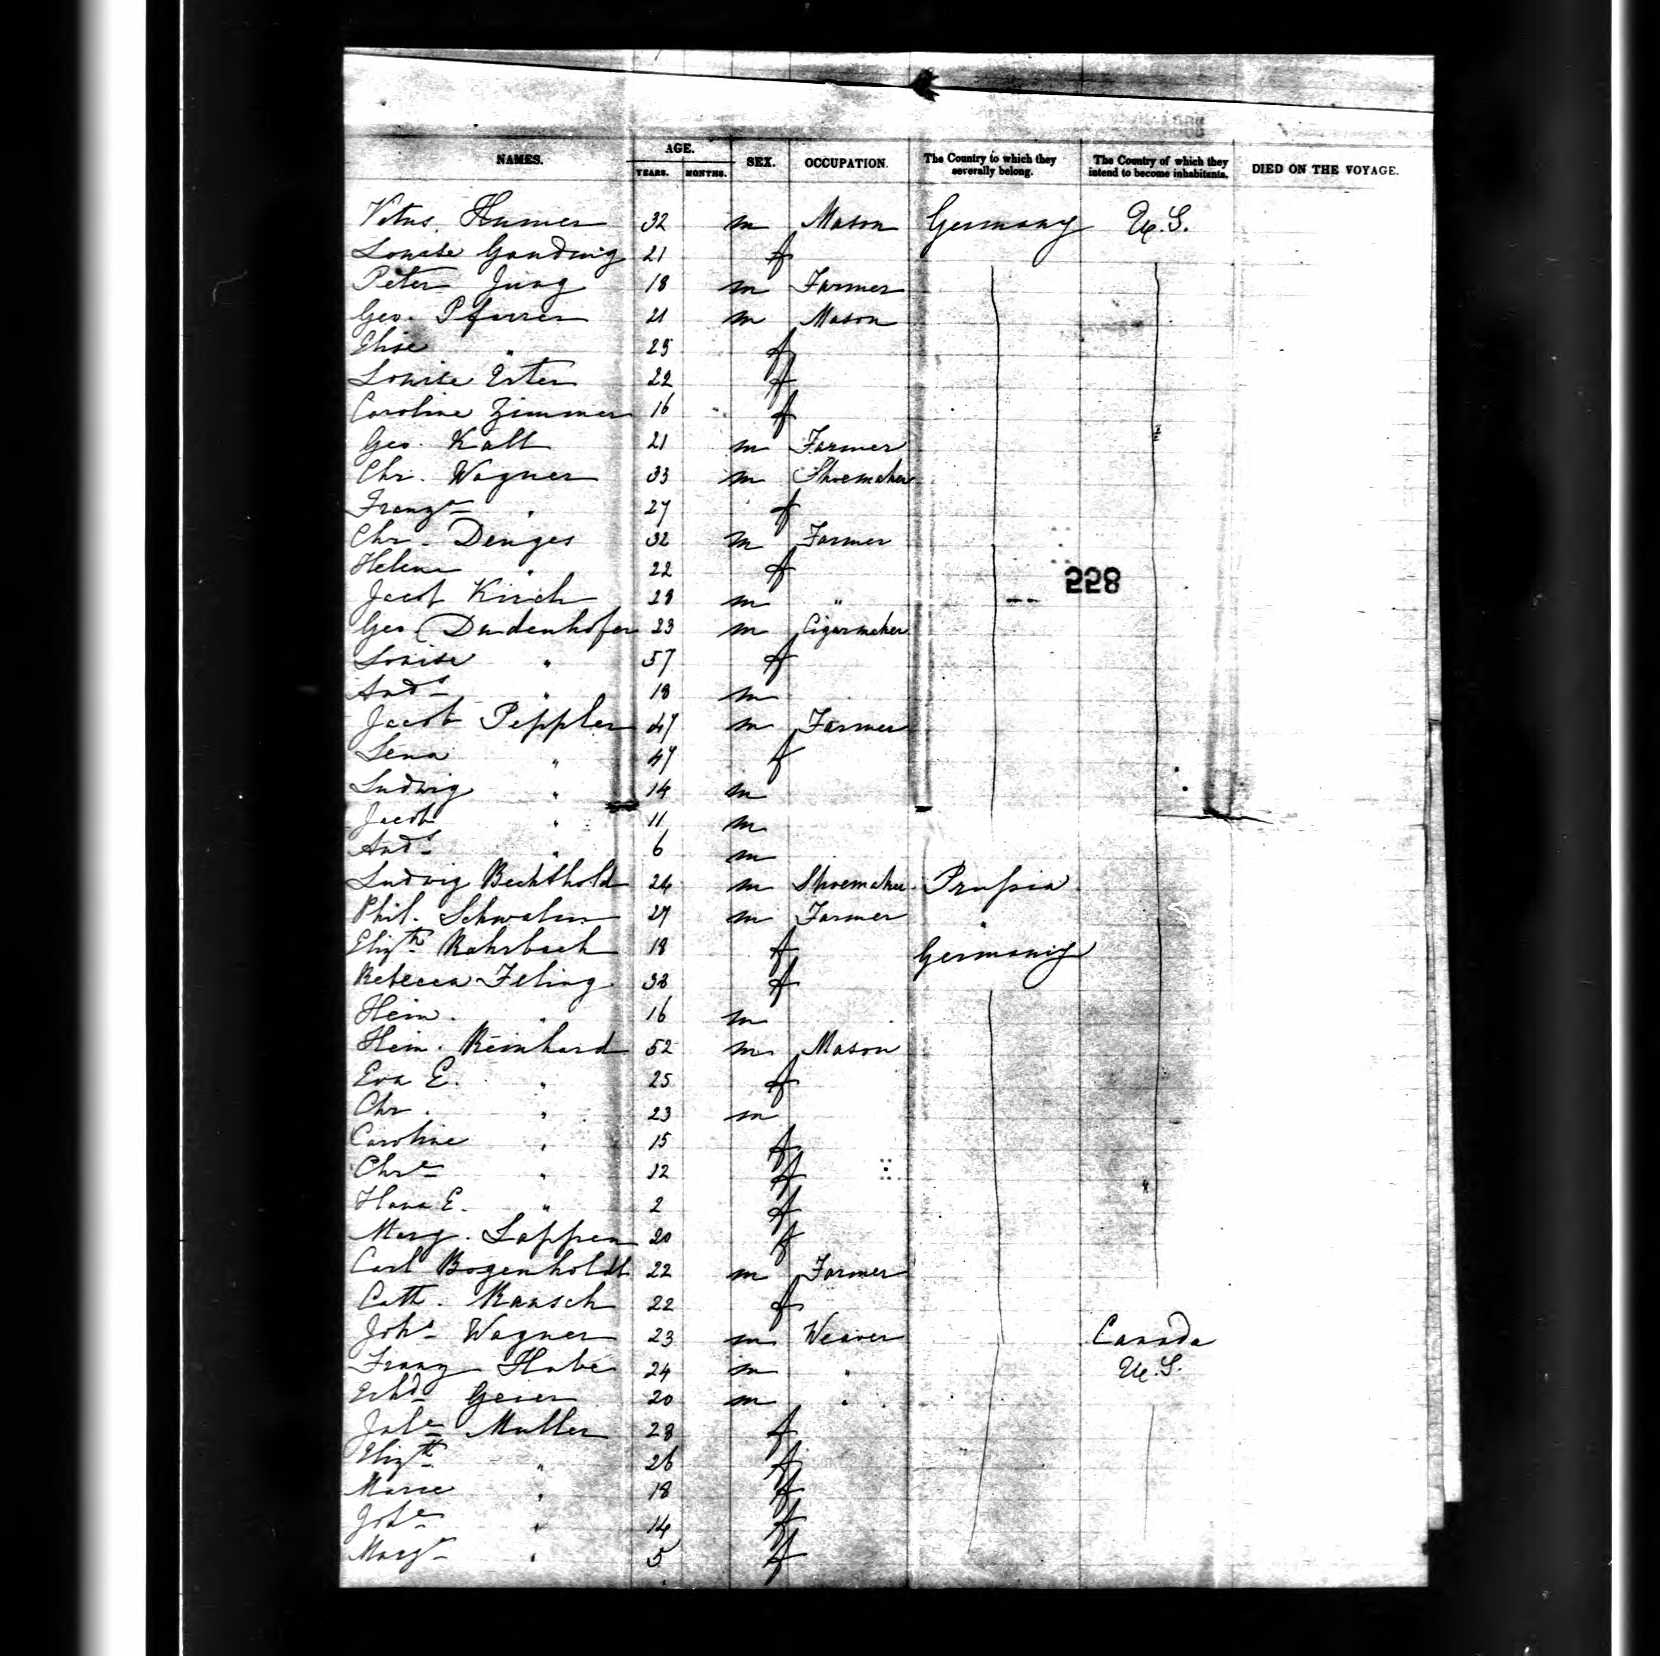 NAMES. AGE. SEX. OCCUPATION. The Country to which they severally belong. The Country of which they intend to become inhabitants. DIED ON THE VOYAGE.
YEARS. MONTHS.
Vitus Humer 32 m Mason Germany U.S.
Louise 21 f
Peter Jung 18 m Farmer
Geo. Pfurrer 21 m Mason
Elise " 25 f
Louise Erter 22 f
Caroline Zimmer 16 f
Geo. Kalt 21 m Farmer
Chr. Wagner 33 m Shoemaker
Franza " 27 f
Chr. Denges 32 m Farmer
Helene " 22 f
228
Jacob Kirch 28 m "
Geo Dudenhofer 23 m Cigarmaker
Louise " 57 f
Ands " 18 m
Jacob Peppler 47 m Farmer
Lena " 47 f
Ludwig " 14 m
Jacob " 11 m
Ands " 6 m
Ludwig Bechthold 24 m Shoemaker Prussia
Phil. Schwalm 27 m Farmer "
Elizth Rohrbach 18 f Germany
Rebecca Feling 38 f
Hein. " 16 m
Hein. Reinhard 52 m Mason
Eva E. " 25 f
Chr. " 23 m
Caroline " 15 f
Chre " 12 f
E. " 2 f
Marg. Lapper 20 f
Carl Bogenholdt 22 m Farmer
Cath. Rausch 22 f
Johs Wagner 23 m Weaver Canada
Franz Hube 24 m " U.S.
Erhd Geier 20 m "
Jule Muller 28 f
Elizth " 26 f
Marie " 18 f
Johe " 14 f
Margt " 5 f